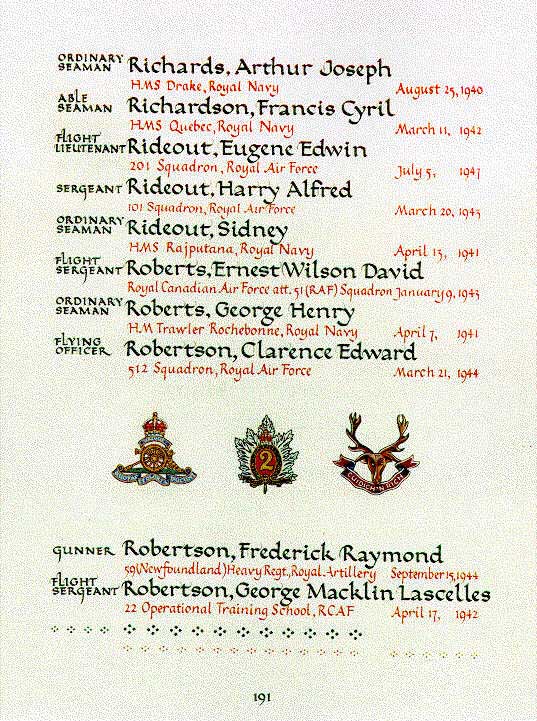 ORDINARY SEAMAN Richards, Arthur Joseph
HMS Drake, Royal Navy August 25, 1940
ABLE SEAMAN Richardson, Francis Cyril
HMS Quebec, Royal Navy March 11, 1942
FLIGHT LIEUTENANT Rideout, Eugene Edwin
201 Squadron, Royal Air Force July 5,
SERGEANT Rideout, Harry Alfred
101 Squadron, Royal Air Force March 20, 1943
ORDINARY SEAMAN Rideout, Sidney
HMS Rajputana, Royal Navy April 13, 1941
FLIGHT SERGEANT Roberts, Ernest Wilson David
Royal Canadian Air Force att. 51 (RAF) Squadron January 9, 1943
ORDINARY SEAMAN Roberts, George Henry
HM Trawler Rochebonne, Royal Navy April 7, 1941
FLYING OFFICER Robertson, Clarence Edward
512 Squadron, Royal Air Force March 21, 1944
2
CUIDICH 'N RIGH
GUNNER Robertson, Frederick Raymond
59 (Newfoundland) Heavy Regt., Royal Artillery September 15, 1944
FLIGHT SERGEANT Robertson, George Macklin Lascelles
22 Operational Training School, RCAF April 17, 1942
191